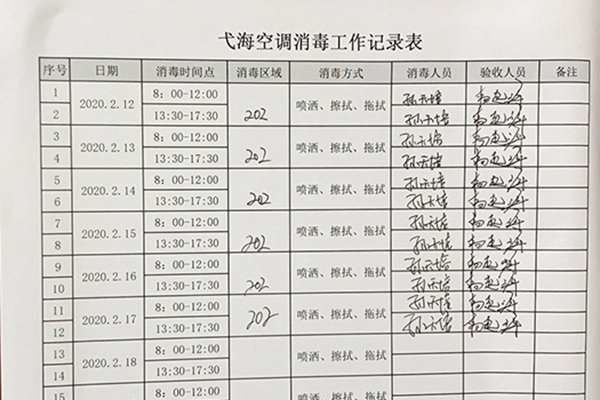 弋海空调消毒工作记录表
序号 日期 消毒时间点 消毒区域 消毒方式 消毒人员 验收人员 备注
1 2020.2.12 8：00-12:00 202 喷洒、擦拭、拖拭 孙天培
2 13:30-17:30 孙天培
3 2020.2.13 8：00-12:00 202 喷洒、擦拭、拖拭 孙天培
4 13:30-17:30 孙天培
5 2020.2.14 8：00-12:00 202 喷洒、擦拭、拖拭 孙天培
6 13:30-17:30 孙天培
7 2020.2.15 8：00-12:00 202 喷洒、擦拭、拖拭 孙天培
8 13:30-17:30 孙天培
9 2020.2.16 8：00-12:00 202 喷洒、擦拭、拖拭 孙天培
10 13:30-17:30 孙天培
11 2020.2.17 8：00-12:00 202 喷洒、擦拭、拖拭 孙天培
12 13:30-17:30 孙天培
13 2020.2.18 8：00-12:00 喷洒、擦拭、拖拭
14 13:30-17:30
15 8：00-12:00 喷洒、擦拭、拖拭